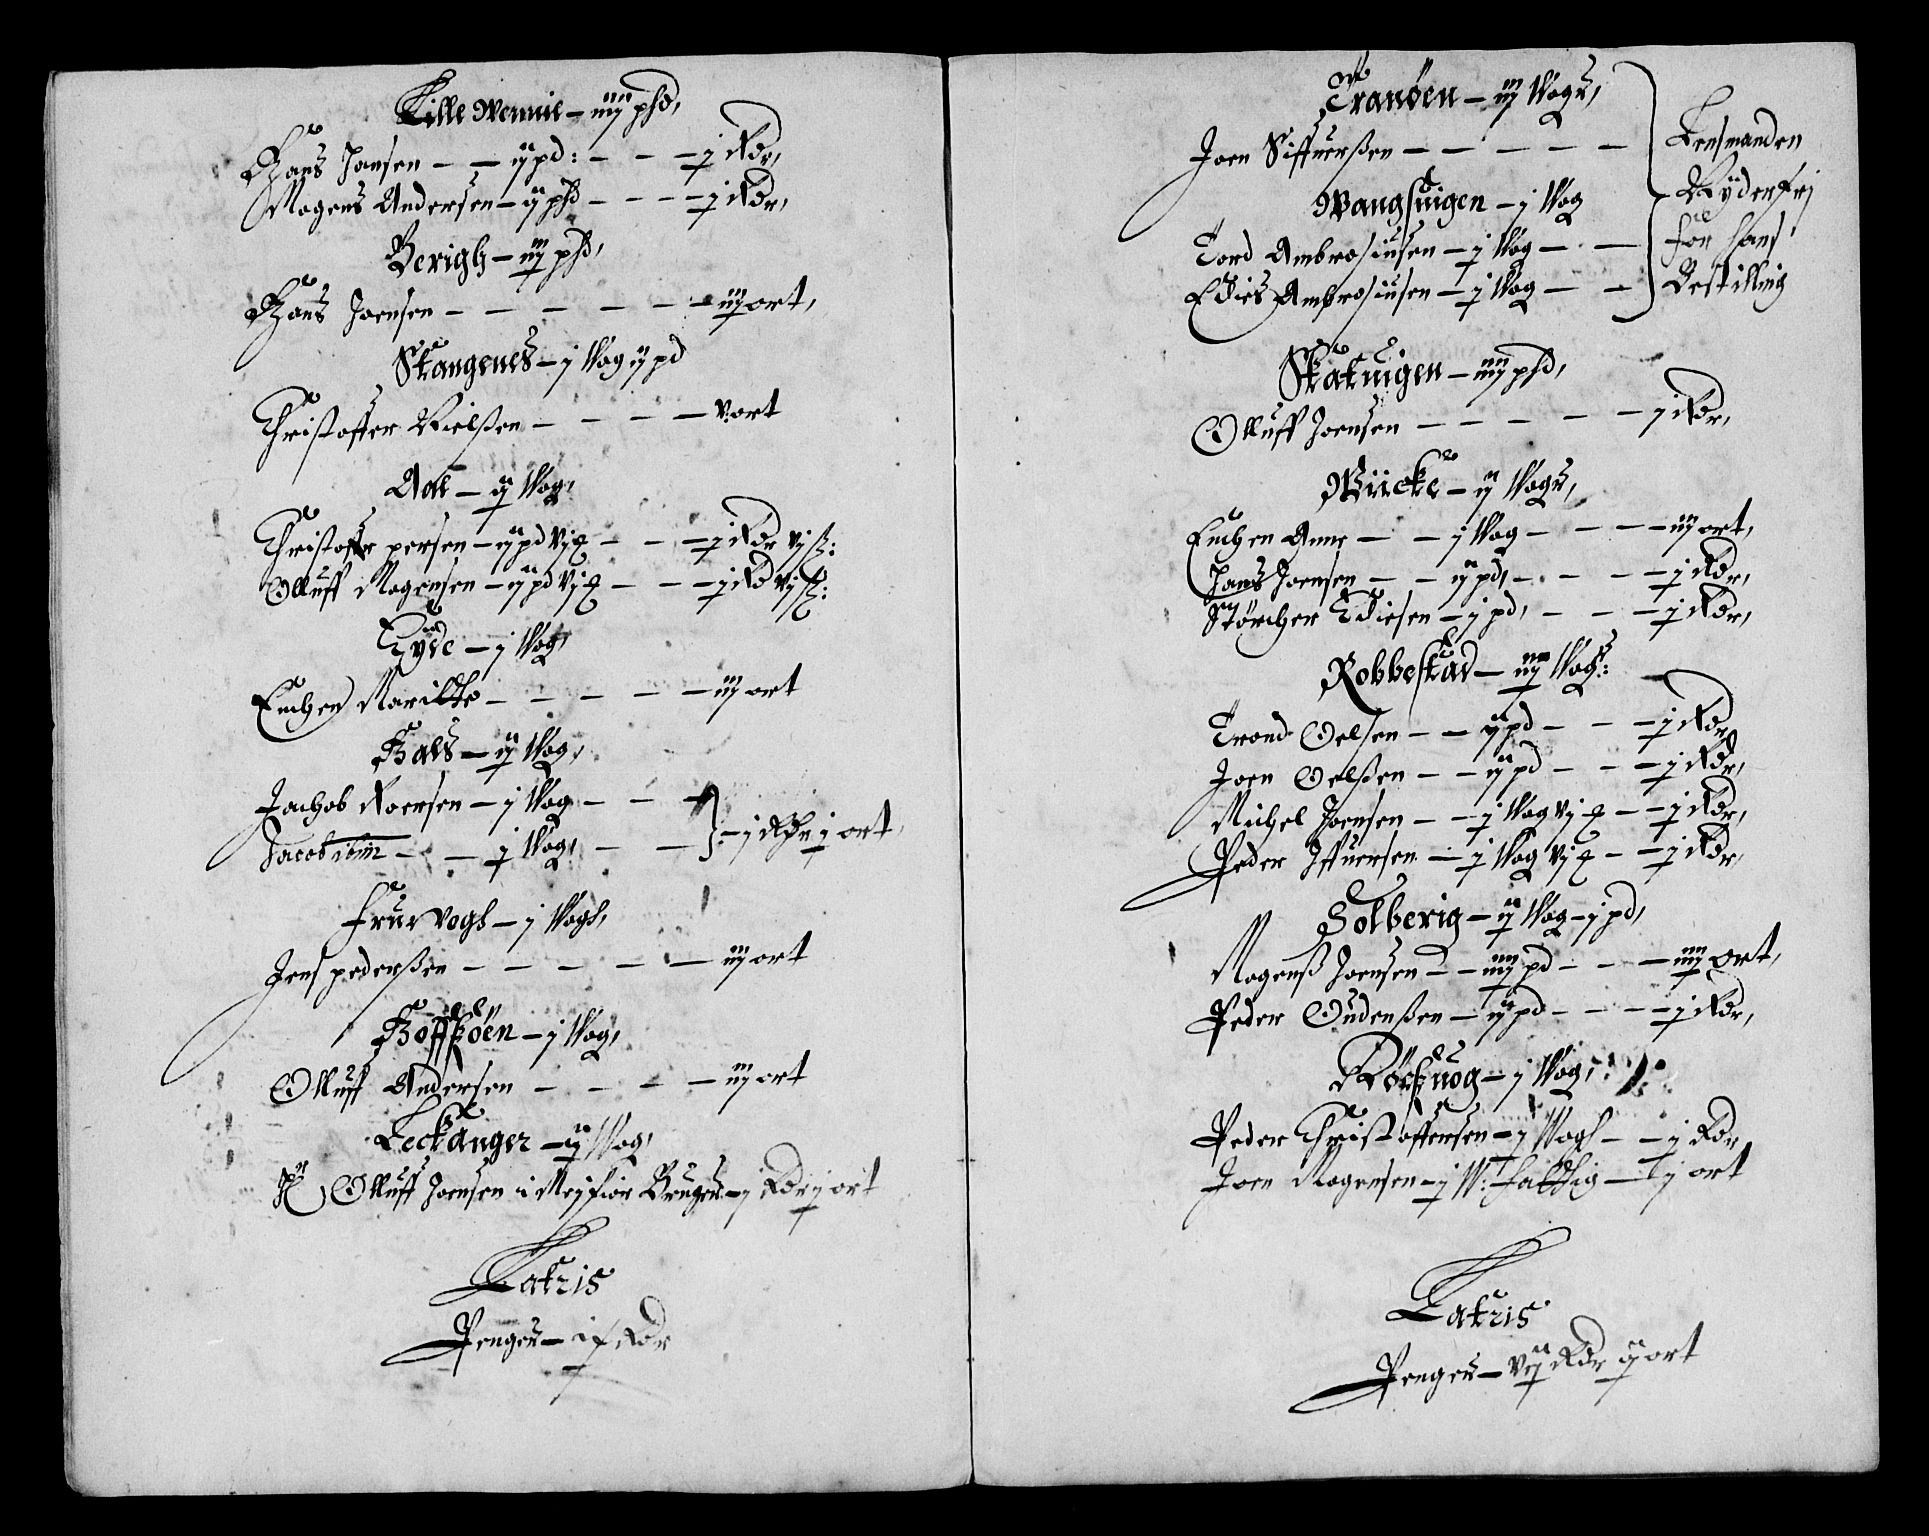 Lille Wennie – iiij phd,
Hans Jansen – – ij pd: – – – j Rdr,
Mogens Andersen – ij phd – – – j Rdr,
Berigh – iij phd,
Hans Joensen – – – – – iij ort,
Skangenes – j Wog ij pd
Christoffer Nielssen – – – – v ort
Aae – ij Wog,
Christoffer persen – ij pd vj – – j Rdr vj ß:
Olluff Mogensen – ij pd vj – – j Rd vj ß:
Eyde – j Wog,
Enchen Maritte – – – – – iij ort
Bals – ij Wog,
Jachob Roersen – j Wog – – –
Jacob ibm – – j Wog, – – – j Rdr j ort,
Fruervogh – j Wogh,
Jens pederssen – – – – – iij ort
Boffköen – j Wog,
Olluff Andersen – – – – iij ort
Leckanger – ij Wog,
Olluff Joensen i Meffior Bruger – j Rdr j ort
Latris
Penger – Rdr
Tranöen – iij Wogr,
Joen Siffuerssen – – – – –
Wangsuigen – j Wog
Tord Ambrosiusen – j Wog – –
Edies Ambrosiusen – j Wog – –
Lensmanden
Nyder Frj
for hans
Bestilling
Skatuigen – iiij phd,
Olluff Joensen – – – – – j Rdr,
Wiicke – ij Wogr,
Enchen Anne – – j Wog – – – iij ort,
Hans Joensen – – ij pd, – – – j Rdr,
Störcher Ediesen – j pd, – – – j Rdr,
Robbestad – iij Wog:
Trond Oelsen – – ij pd – – – j Rdr
Joen Oelssen – – ij pd – – – j Rdr,
Michel Joensen – – j Wog vj – – j Rdr,
Peder Iffuersen – j Wog vj – – j Rdr,
Solberig – ij Wog – j pd,
Mogenss Joensen – – iiij pd – – – iiij ort,
Peder Oudenssen – ij pd – – – j Rdr,
– j Wog,
Peder Christoffersen – j Wogh – – j Rdr,
Joen Mogensen – j W: fattig – j ort
Latris
Penger – vij Rdr ij ort